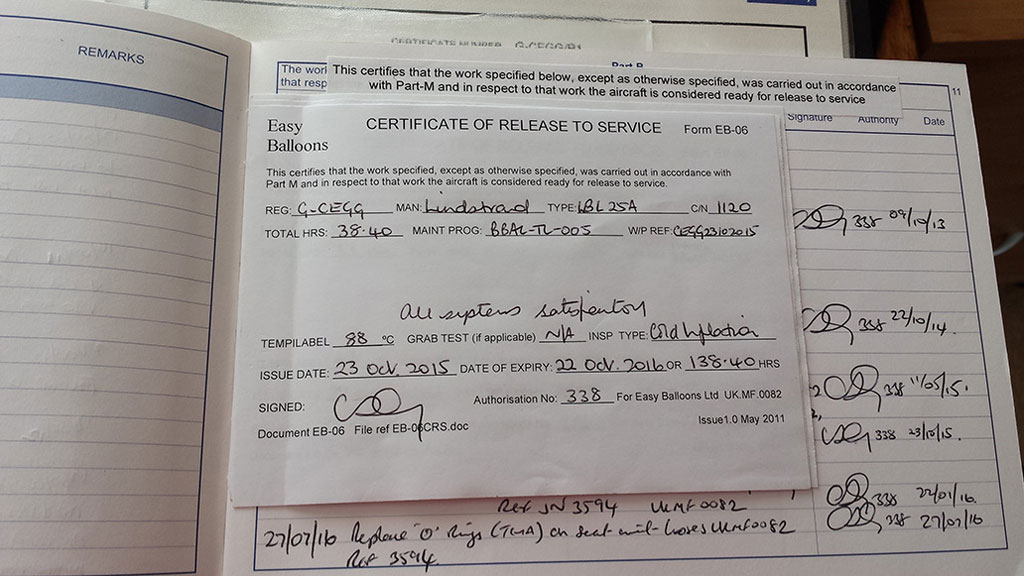 REMARKS
CERTIFICATE NUMBER G-CEGG/R1
Part B
11
The work
that resp
This certifies that the work specified below, except as otherwise specified, was carried out in accordance
with Part-M and in respect to that work the aircraft is considered ready for release to service
Signature Authority Date
Easy
Balloons
CERTIFICATE OF RELEASE TO SERVICE Form EB-06
This certifies that the work specified, except as otherwise specified, was carried out in accordance with
Part M and in respect to that work the aircraft is considered ready for release to service.
REG: G-CEGG MAN: Lindstrand TYPE: LBL 25A C/N 1120
TOTAL HRS: 38.40 MAINT PROG: BBAC-TL-005 W/P REF: CEGG23102015
All systems satisfactory
TEMPILABEL 88 °C GRAB TEST (if applicable) N/A INSP TYPE: Cold Inflation
ISSUE DATE: 23 Oct. 2015 DATE OF EXPIRY: 22 Oct. 2016 OR 138.40 HRS
SIGNED: Authorisation No: 338 For Easy Balloons Ltd UK.MF.0082
Document EB-06 File ref EB-06CRS.doc Issue1.0 May 2011
338 09/10/13
338 22/10/14.
338 11/05/15.
338 23/10/15.
Ref JN 3594 UKMF0082
338 22/01/16.
27/07/16 Replace 'O' Rings (TCMA) on seat unit hoses UKMF0082
338 27/07/16
Ref 3594.